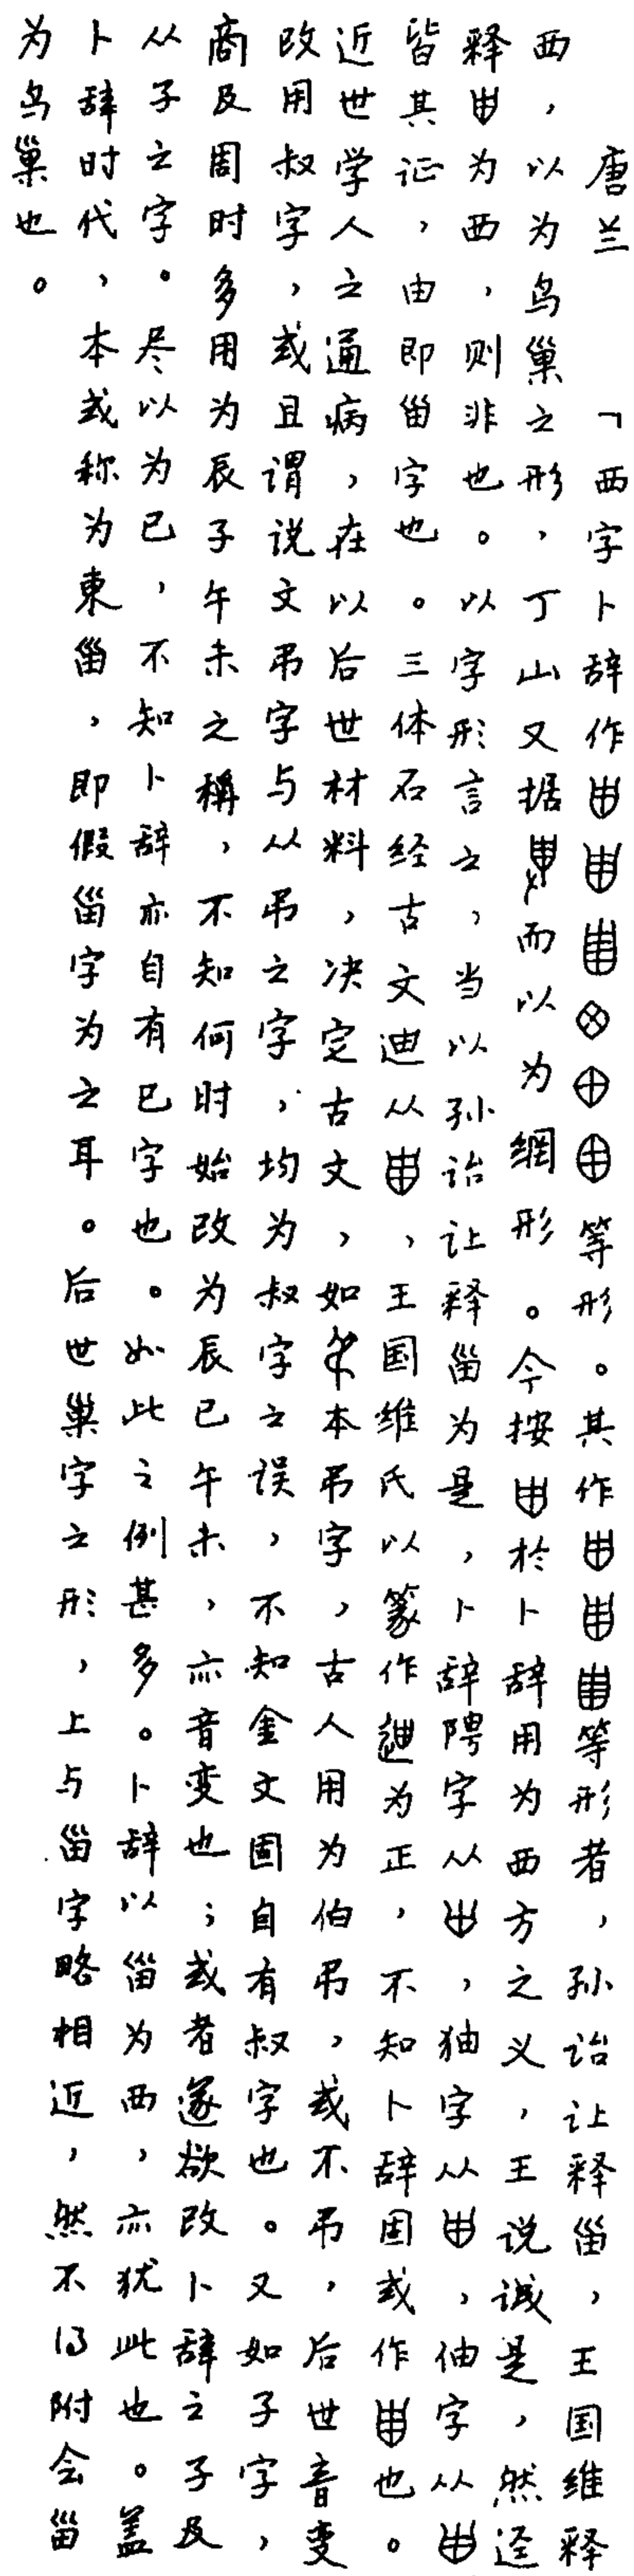 唐兰　「西字卜辞作等形。其作等形者，孙诒让释甾，王国维释
西，以为鸟巢之形，丁山又据而以为網形。今按於卜辞用为西方之义，王说诚是，然迳
释为西，则非也。以字形言之，当以孙诒让释甾为是，卜辞聘字从，㹨字从，伷字从
皆其证，由即甾字也。三体石经古文迪从，王国维氏以篆作为正，不知卜辞固或作也。
近世学人之通病，在以后世材料，决定古文，如本弔字，古人用为伯弔，或不弔，后世音变
改用叔字，或且谓说文弔字与从弔之字，均为叔字之误，不知金文固自有叔字也。又如子字，
商及周时多用为辰子午未之稱，不知何时始改为辰巳午未，亦音变也；或者遂欲改卜辞之子及
从子之字。尽以为巳，不知卜辞亦自有巳字也。如此之例甚多。卜辞以甾为西，亦犹此也。盖
卜辞时代，本或称为東甾，即假甾字为之耳。后世巢字之形，上与甾字略相近，然不得附会甾
为鸟巢也。